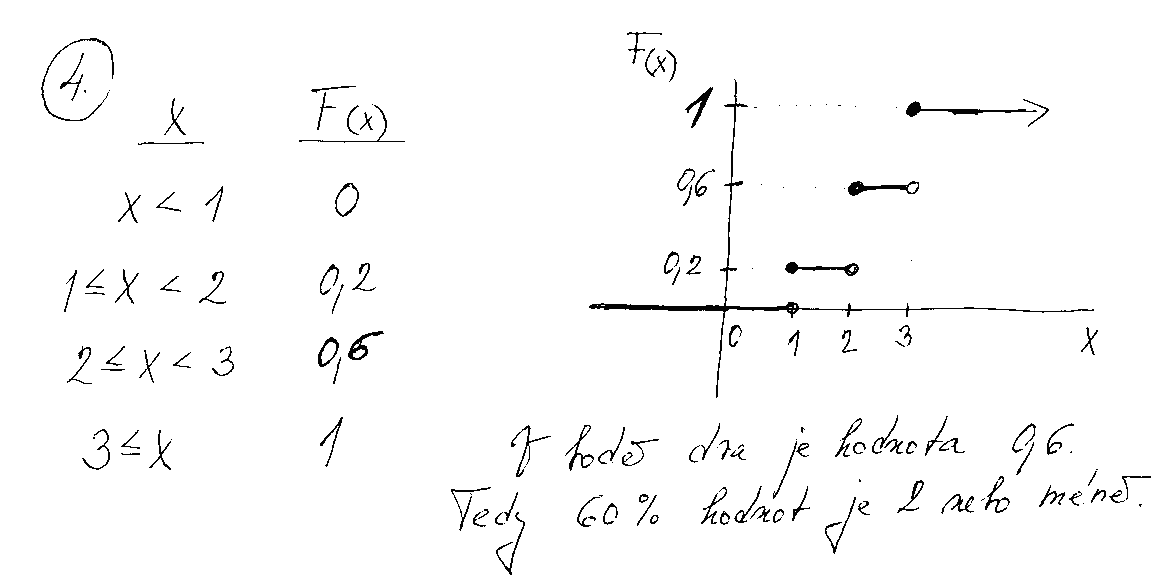 4.
x F(x)
x < 1 0
1 ≤ x < 2 0,2
2 ≤ x < 3 0,6
3 ≤ x 1
F(x)
1
0,6
0,2
0 1 2 3 x
V bodě dva je hodnota 0,6.
Tedy 60% hodnot je 2 nebo méně.